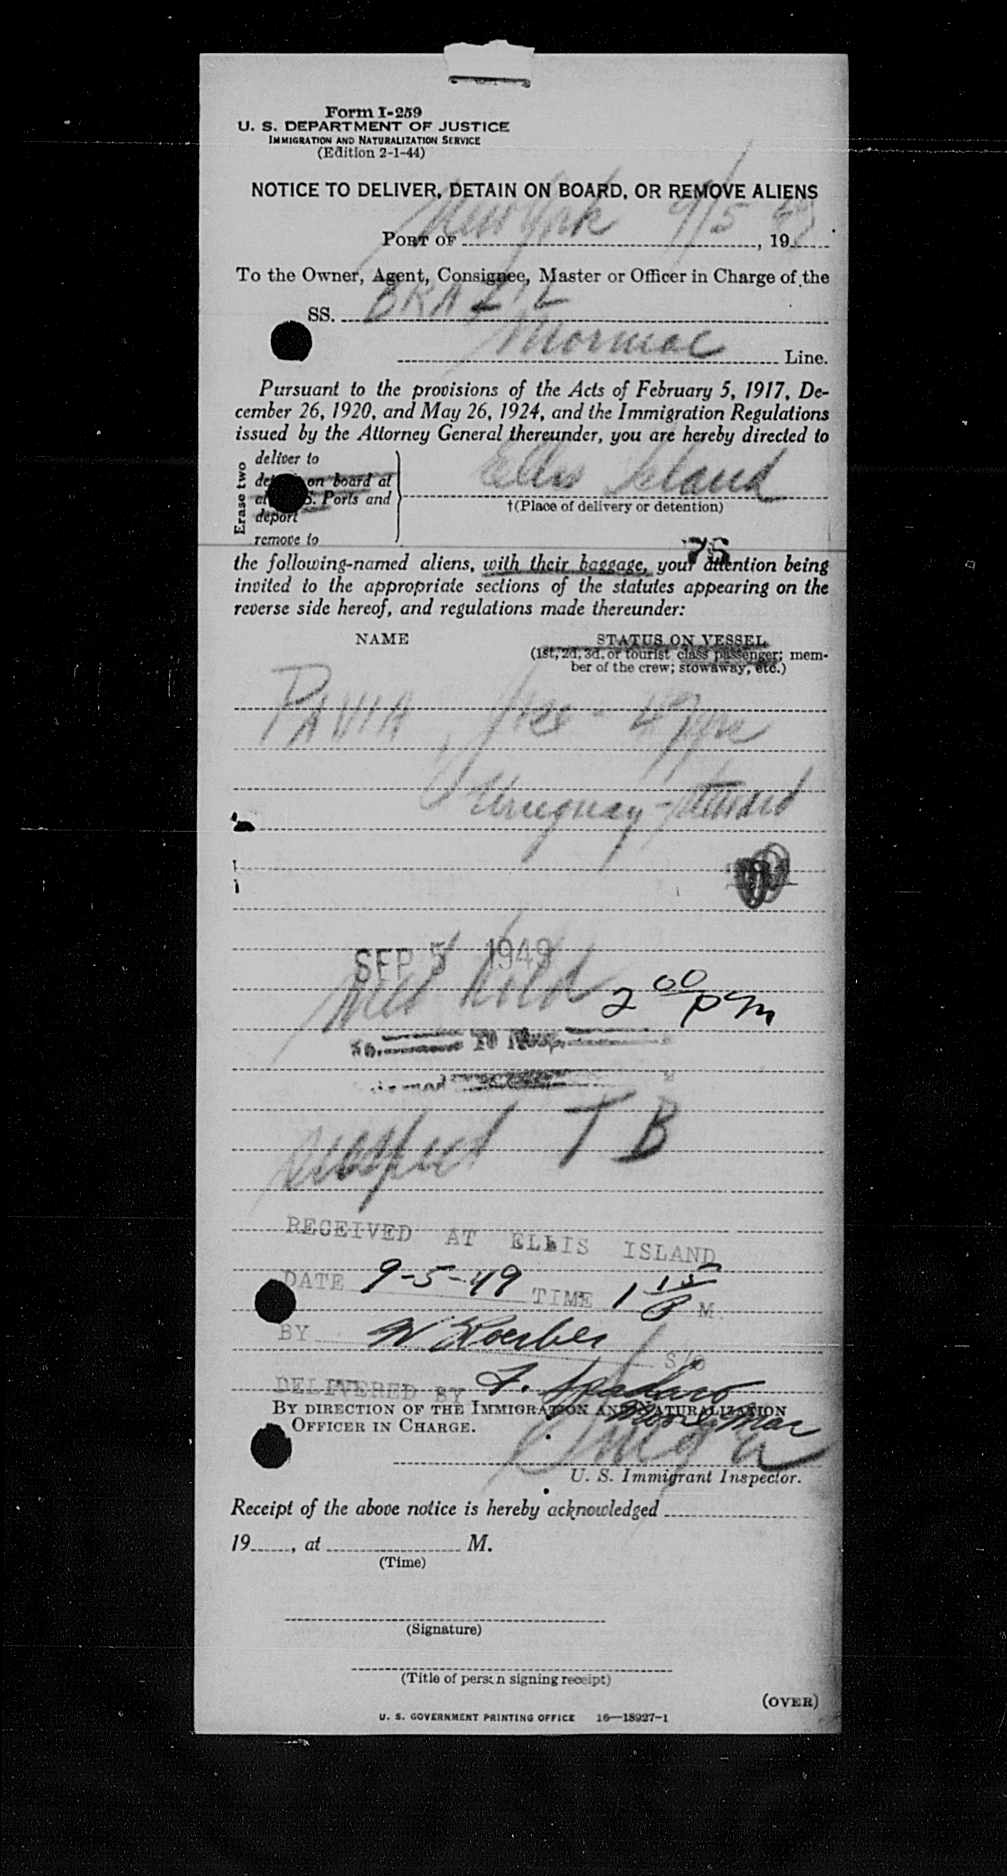 Form I-259
U. S. DEPARTMENT OF JUSTICE
IMMIGRATION AND NATURALIZATION SERVICE
(Edition 2-1-44)
NOTICE TO DELIVER, DETAIN ON BOARD, OR REMOVE ALIENS
PORT OF New York 9/5, 1949
To the Owner, Agent, Consignee, Master or Officer in Charge of the
SS. BRAZIL
Mormac Line.
Pursuant to the provisions of the Acts of February 5, 1917, De-
cember 26, 1920, and May 26, 1924, and the Immigration Regulations
issued by the Attorney General thereunder, you are hereby directed to
Erase two
deliver to
on board at
S. Ports and
deport
remove to
Ellis Island
†(Place of delivery or detention)
75
the following-named aliens, with their baggage, your attention being
invited to the appropriate sections of the statutes appearing on the
reverse side hereof, and regulations made thereunder:
NAME STATUS ON VESSEL
(1st, 2d, 3d, or tourist class passenger; mem-
ber of the crew; stowaway, etc.)
PAVIA
Uruguay - steward
SEP 5 1949
Med Hold 2 00 pm
TO Hosp.
suspect T B
RECEIVED AT ELLIS ISLAND
DATE 9-5-49 TIME 1 15 P M.
BY W Koerber
DELIVERED BY F. Spadaro
BY DIRECTION OF THE IMMIGRATION AND NATURALIZATION
OFFICER IN CHARGE.
U. S. Immigrant Inspector.
Receipt of the above notice is hereby acknowledged
19, at M.
(Time)
(Signature)
(Title of person signing receipt)
(OVER)
U. S. GOVERNMENT PRINTING OFFICE 16—18927-1